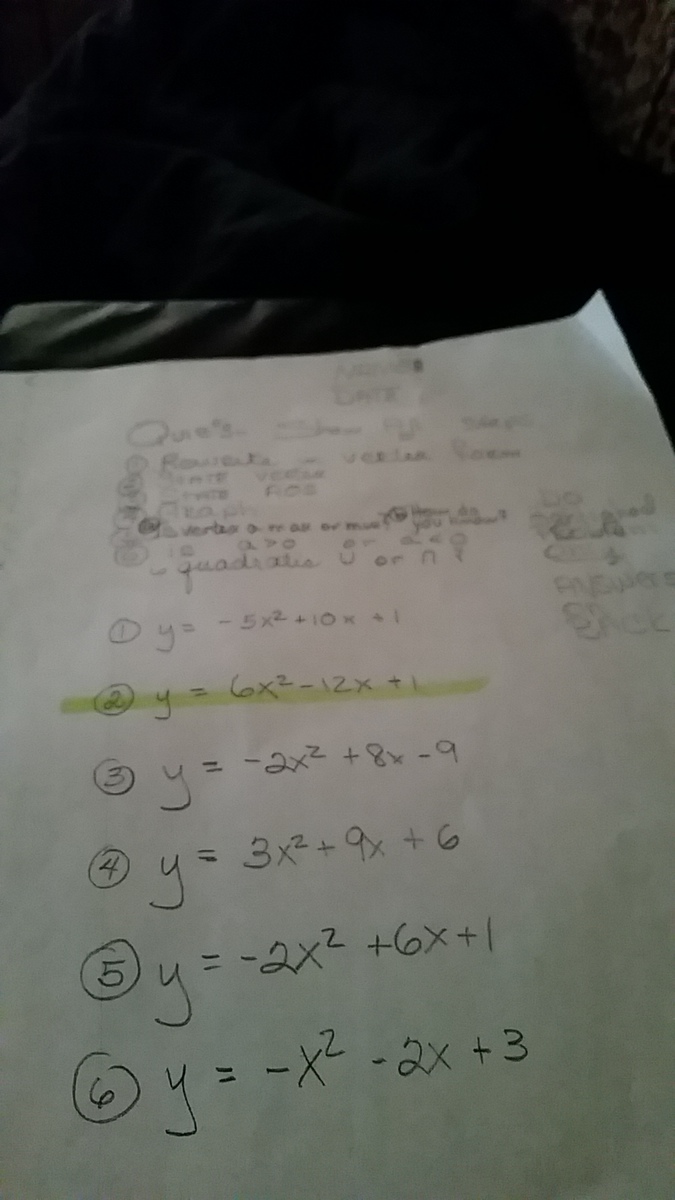 DATE
① Rewrite - vertex Form
② STATE VERTEX
③ STATE AOS
④ Graph
vertex a max or min? How do you know?
is a>0 or a<0
quadratic U or ∩?
DO
ANSWERS
① y = -5x² + 10x + 1
② y = 6x² - 12x + 1
③ y = -2x² + 8x - 9
④ y = 3x² + 9x + 6
⑤ y = -2x² + 6x + 1
⑥ y = -x² - 2x + 3